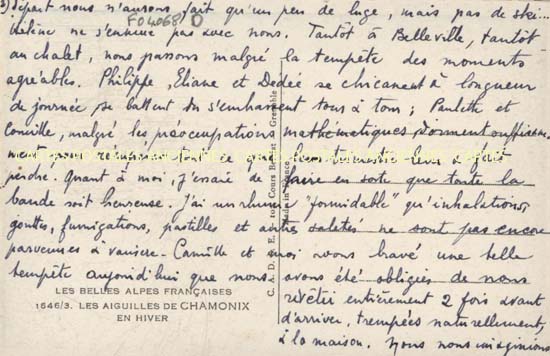 3) départ nous n'aurons fait qu'un peu de luge, mais pas de ski...
FO4068 D
Hélène ne s'ennuie pas avec nous. Tantôt à Belleville, tantôt
au chalet, nous passons malgré la tempête des moments
agréables. Philippe, Eliane et Dédée se chicanent à longueur
de journée se battent ou s'embrassent tous à tour ; Paulette et
Camille, malgré les préoccupations mathématiques dorment suffisam-
ment pour récupérer tout ce que leur trimestre leur a fait
perdre. Quant à moi, j'essaie de faire en sorte que toute la
bande soit heureuse. J'ai un rhume "formidable" qu'inhalations,
gouttes, fumigations, pastilles et autres saletés ne sont pas encore
parvenues à vaincre. Camille et moi avons bravé une belle
tempête aujourd'hui que nous avons été obligées de nous
revêtir entièrement 2 fois avant
d'arriver, trempées naturellement,
à la maison. Nous nous imaginions
LES BELLES ALPES FRANÇAISES
1646/3. LES AIGUILLES DE CHAMONIX
EN HIVER
C. A. D. E. 101 Cours Berriat - Grenoble
Made in France